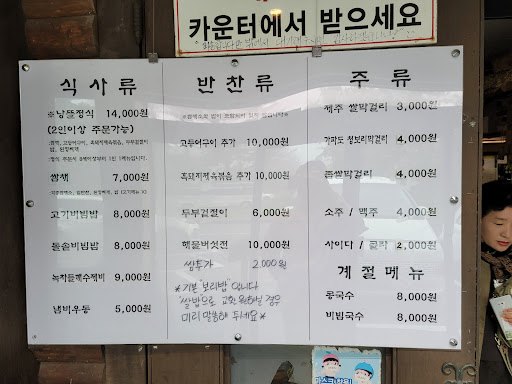 카운터에서 받으세요
식사류
※낭뜰정식 14,000원
(2인이상 주문가능)
쌈채 7,000원
고기비빔밥 8,000원
돌솥비빔밥 8,000원
녹차들깨수제비 9,000원
냄비우동 5,000원
반찬류
고등어구이 추가 10,000원
흑돼지제육볶음 추가 10,000원
두부겉절이 6,000원
해물버섯전 10,000원
쌈추가 2,000원
※기본 "보리밥" 입니다
쌀밥으로 교환 원하실 경우
미리 말씀해 두세요※
주류
제주 쌀막걸리 3,000원
가파도 청보리막걸리 4,000원
톳쌀막걸리 4,000원
소주 / 맥주 4,000원
사이다 / 콜라 2,000원
계절메뉴
콩국수 8,000원
비빔국수 8,000원